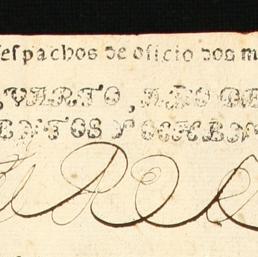 espachos de oficio dos m
VARTO, AÑO DE
ENTOS Y OCHEN